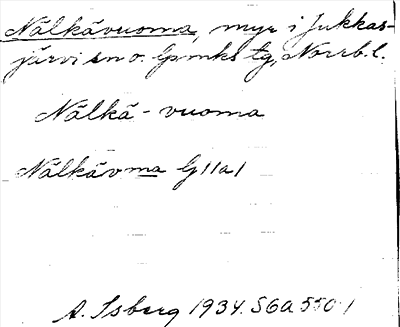 Nälkävuoma, myr i Jukkas-
järvi sn o. lpmks tg, Norrb. l.
Nälkä - vuoma
Nälkävma G11a1
A. Isberg 1934. SGA 550:1